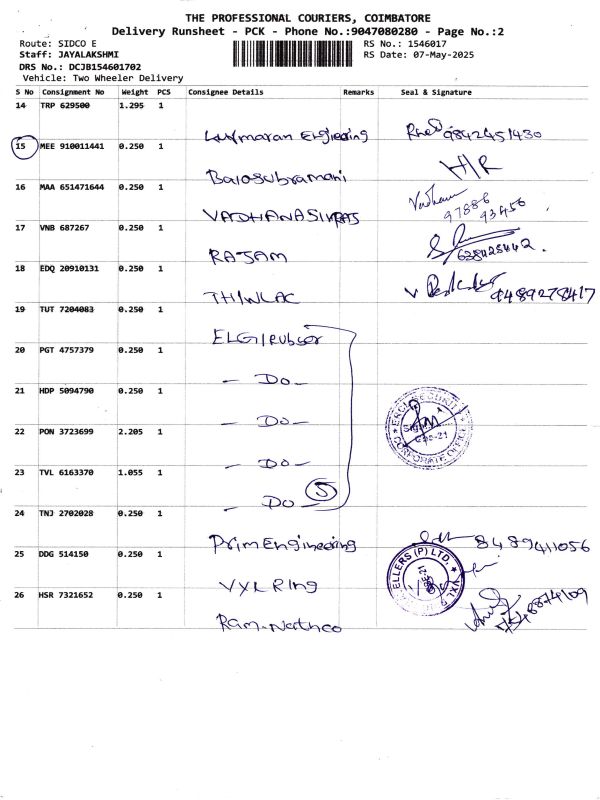 THE PROFESSIONAL COURIERS, COIMBATORE
Delivery Runsheet - PCK - Phone No.:9047080280 - Page No.:2
Route: SIDCO E RS No.: 1546017
Staff: JAYALAKSHMI RS Date: 07-May-2025
DRS No.: DCJB154601702
Vehicle: Two Wheeler Delivery
S No Consignment No Weight PCS Consignee Details Remarks Seal & Signature
14 TRP 629500 1.295 1
Engineering 9842451430
15 MEE 910011441 0.250 1
Balasubramani H/R
16 MAA 651471644 0.250 1
97886
93456
17 VNB 687267 0.250 1
RAJAM
18 EDQ 20910131 0.250 1
9489278417
19 TUT 7204083 0.250 1
ELGI Rubber
20 PGT 4757379 0.250 1
- Do -
21 HDP 5094790 0.250 1
- Do -
22 PON 3723699 2.205 1
- Do -
CORPORATE OFFICE
23 TVL 6163370 1.055 1
- Do - 5
24 TNJ 2702028 0.250 1
Prim Engineering 8489411056
25 DDG 514150 0.250 1
VXL Ring
26 HSR 7321652 0.250 1